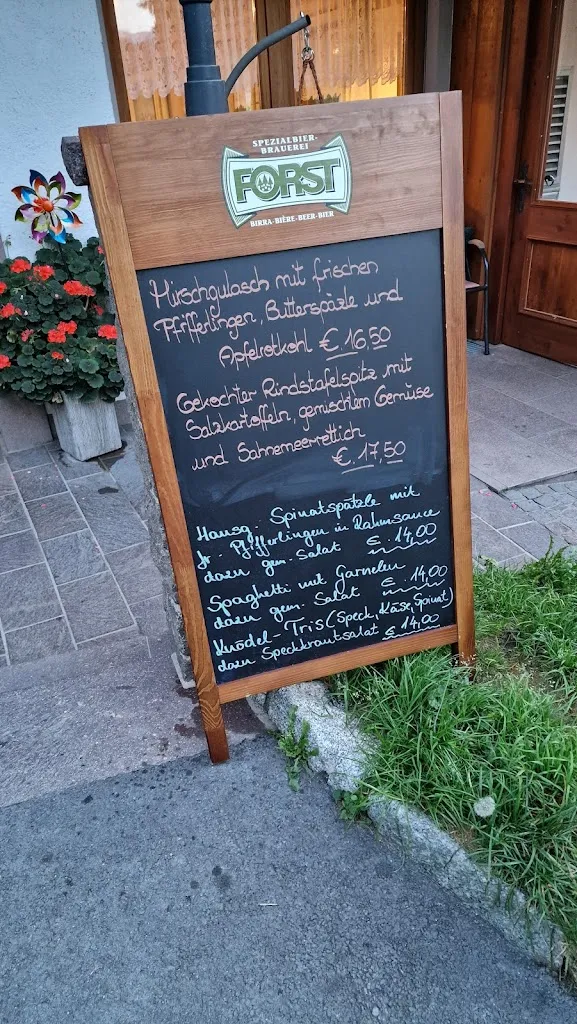 SPEZIALBIER-
BRAUEREI
FORST
BIRRA-BIÈRE-BEER-BIER
Hirschgulasch mit frischen
Pfifferlingen, Butterspätzle und
Apfelrotkohl € 16,50
Gekochter Rindstafelspitz mit
Salzkartoffeln, gemischtem Gemüse
und Sahnemeerrettich
€ 17,50
Hausg. Spinatspätzle mit
fr. Pfifferlingen in Rahmsauce
dazu gem. Salat € 14,00
Spaghetti mit Garnelen
dazu gem. Salat € 14,00
Knödel-Tris (Speck, Käse, Spinat)
dazu Speckkrautsalat € 14,00